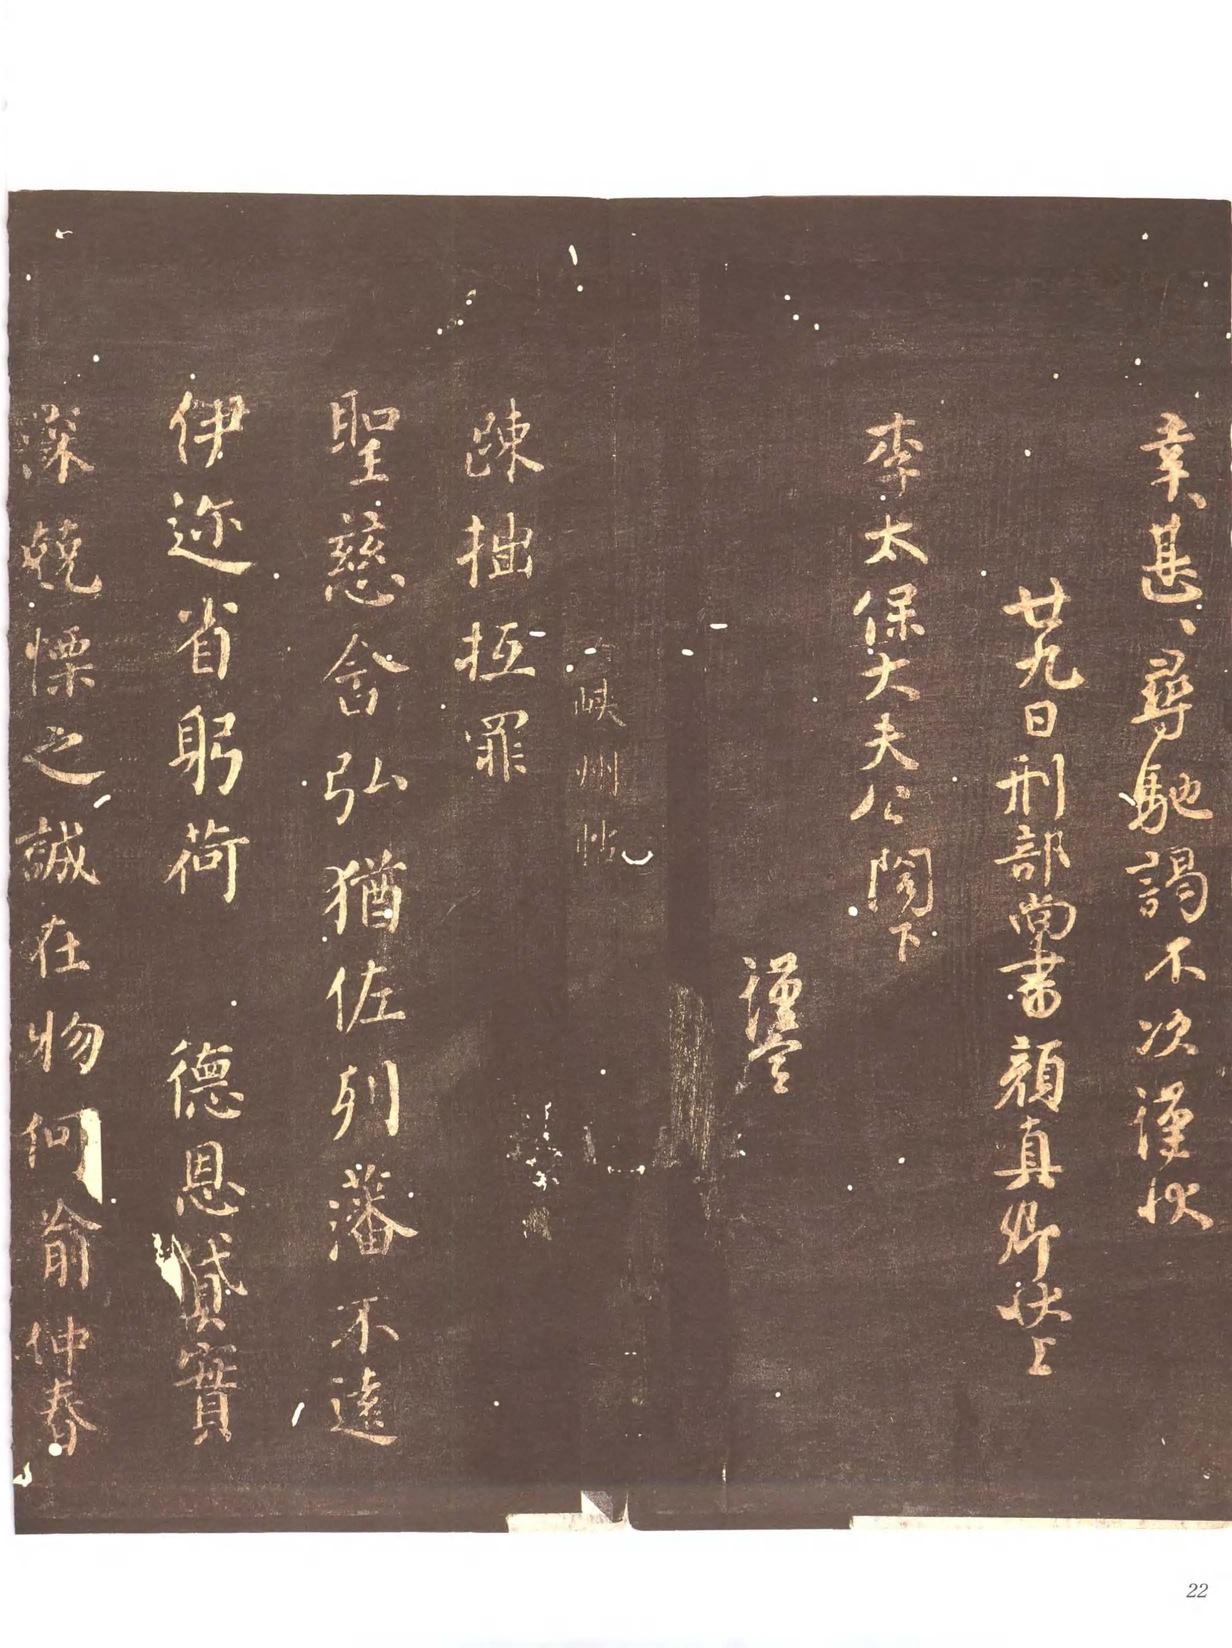 幸、甚、尋馳謁不次謹狀
廿九日刑部尚書顏真卿狀上
李太保大夫公閤下
謹空
峽州帖
疎拙抵罪
聖慈含弘猶佐列藩不遠
伊迩省躬荷 德恩貸實
深兢慄之誠在物何俞仲春
22